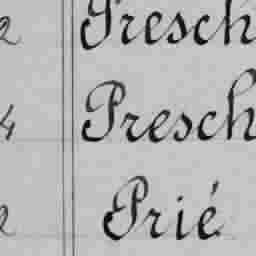 2 Presch
4 Presch
Prié